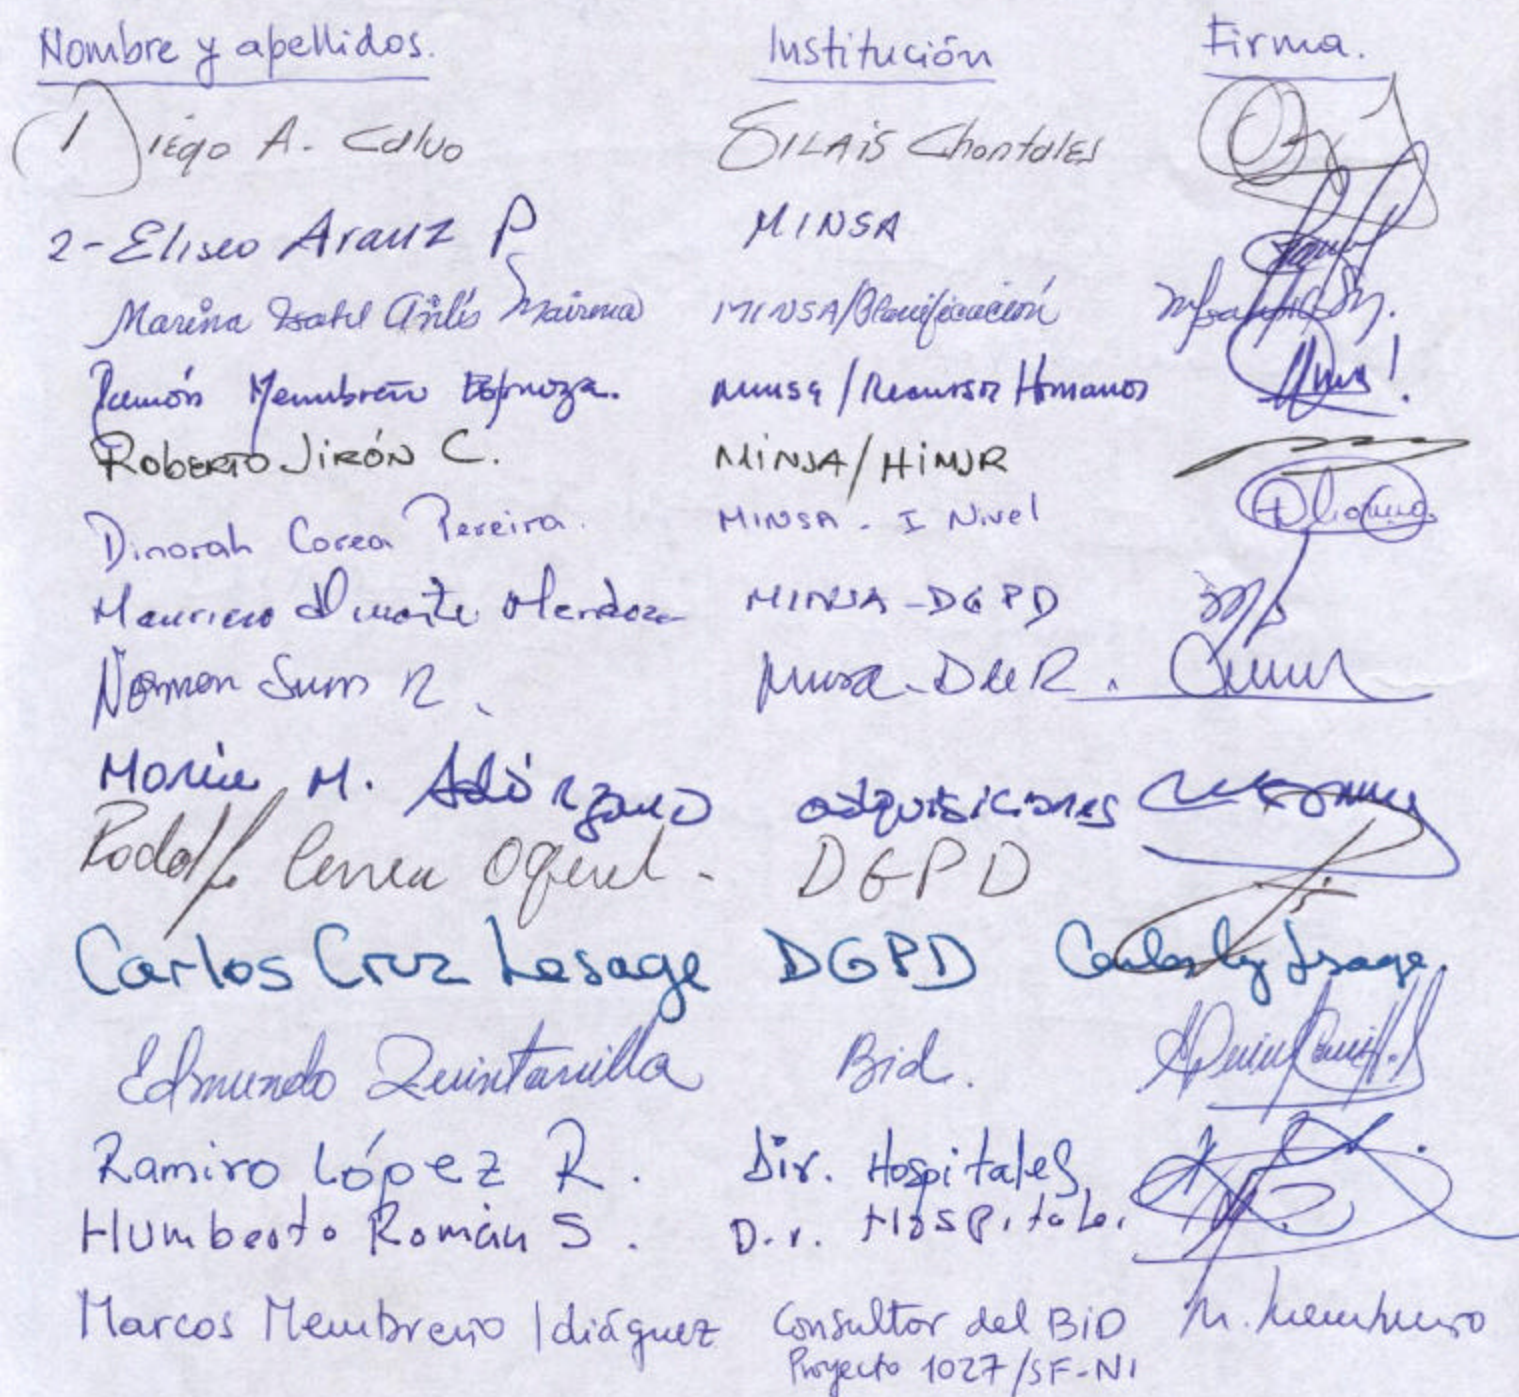 Nombre y apellidos. Institución Firma.
Diego A. Calvo SILAIS Chontales
2- Eliseo Arauz P MINSA
Marina Isabel Avilés Mairena MINSA/Planificación
Ramón Membreño Espinoza. Minsa/Recursos Humanos
ROBERTO JIRÓN C. MINSA/HIMJR
Dinorah Corea Pereira. MINSA - I Nivel
Mauricio Duarte Mendoza MINSA-DGPD
Norman R. Minsa
María M. Solórzano adquisiciones
Rodolfo Correa DGPD
Carlos Cruz Lesage DGPD Lesage
Edmundo Quintanilla Bid.
Ramiro López R. Dir. Hospitales
Humberto Román S. Dir. Hospitales
Marcos Membreño Idiáquez Consultor del BID M. Membreño
Proyecto 1027/SF-NI